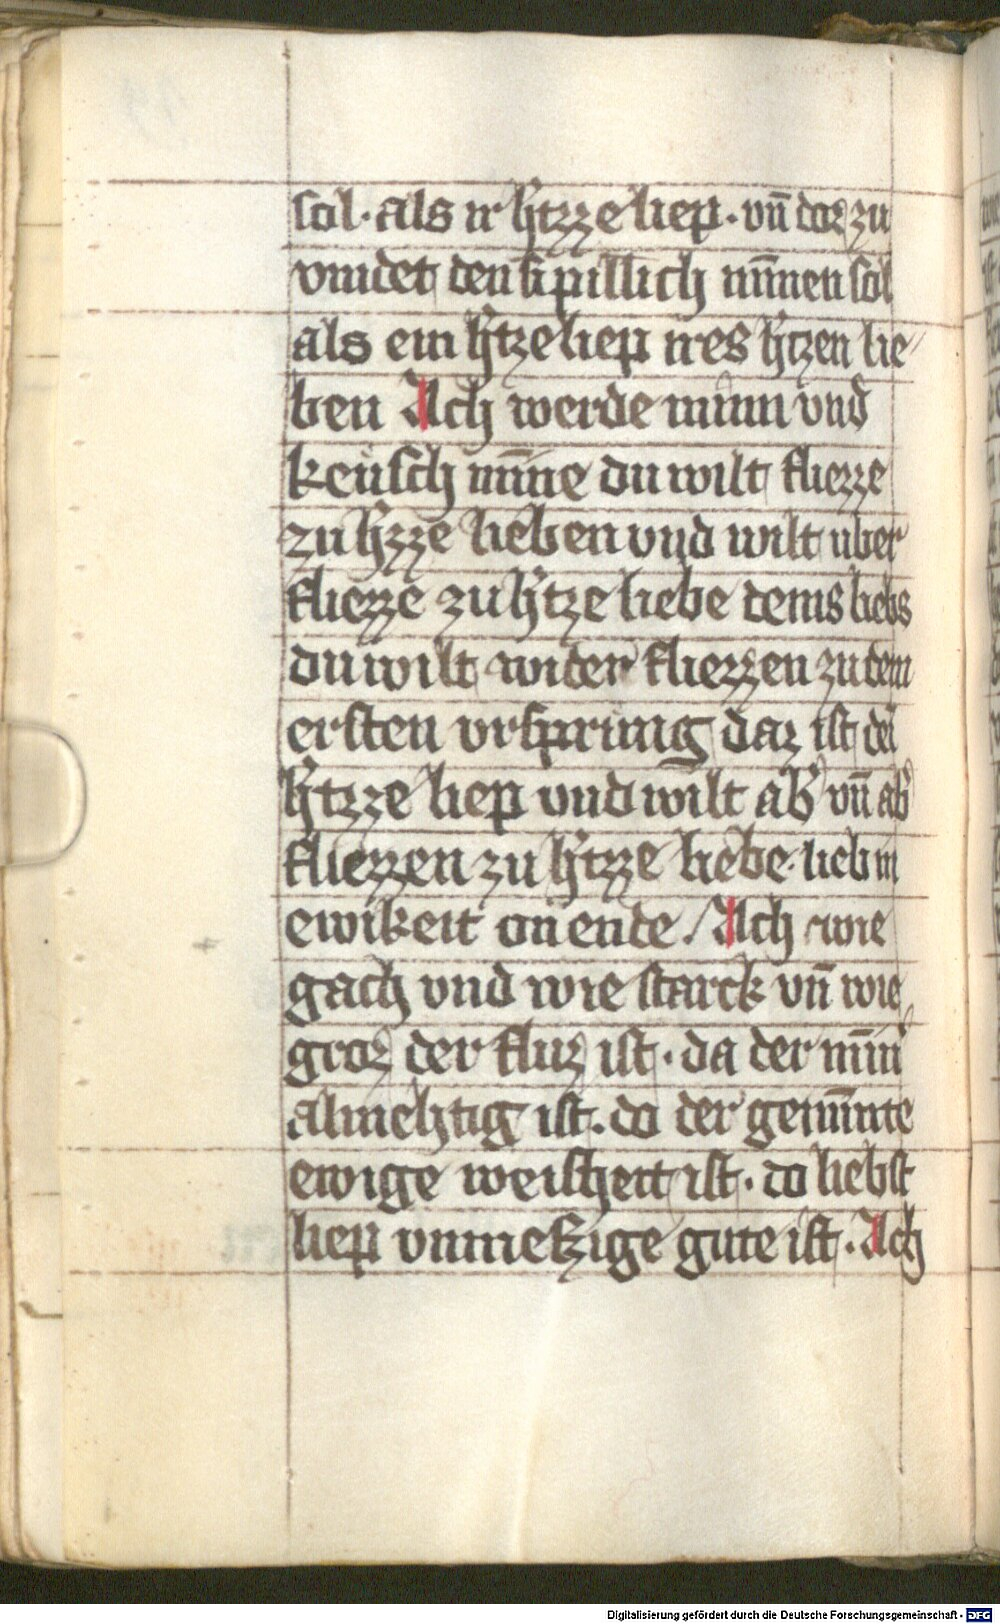 sol · als ir h̓tzze liep · vn̄ dor zu
vindet den spillich mīnnen sol
als ein h̓tze liep ires h̓tzen lie⸗
ben Ach werde minn vnd
keusch mīne du wilt fliezze
zu h̓zze lieben vnd wilt uber
fliezze zu h̓tze liebe deins liebs
du wilt wider fliezzen zu dem
ersten vrspring daz ist dei
h̓tzze liep vnd wilt ab̓ vn̄ ab̓
fliezzen zu h̓tzze liebe · lieb in
ewikeit on ende . Ach wie
gach vnd wie starck vn̄ wie
groz der fluz ist · da der mīn̓
almehtig ist . do der gemīnte
ewige weisheit ist · do liebst
liep vnmeszige gute ist . Ach
Digitalisierung gefördert durch die Deutsche Forschungsgemeinschaft - DFG